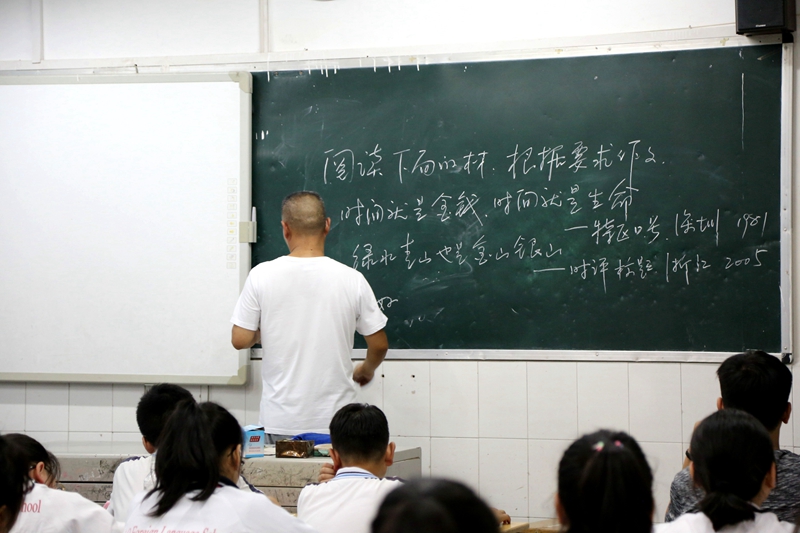 阅读下面的材,根据要求作文.
时间就是金钱,时间就是生命
——特区口号,深圳 1981
绿水青山也是金山银山
——时评标题,浙江 2005
School
Foreign Language